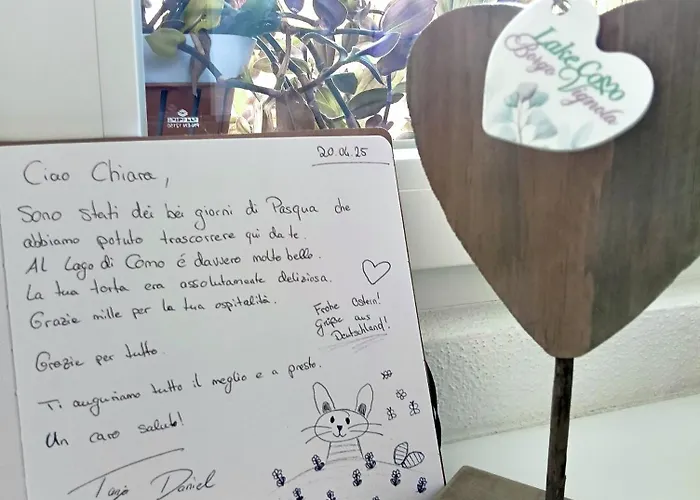 Lake Como
Borgo Vignola
20.04.25
Ciao Chiara,
Sono stati dei bei giorni di Pasqua che
abbiamo potuto trascorrere qui da te.
Al Lago di Como é davvero molto bello.
La tua torta era assolutamente deliziosa.
Grazie mille per la tua ospitalità.
Frohe Ostern!
grüße aus
Deutschland!
Grazie per tutto.
Ti auguriamo tutto il meglio e a presto.
Un caro saluto!
Daniel